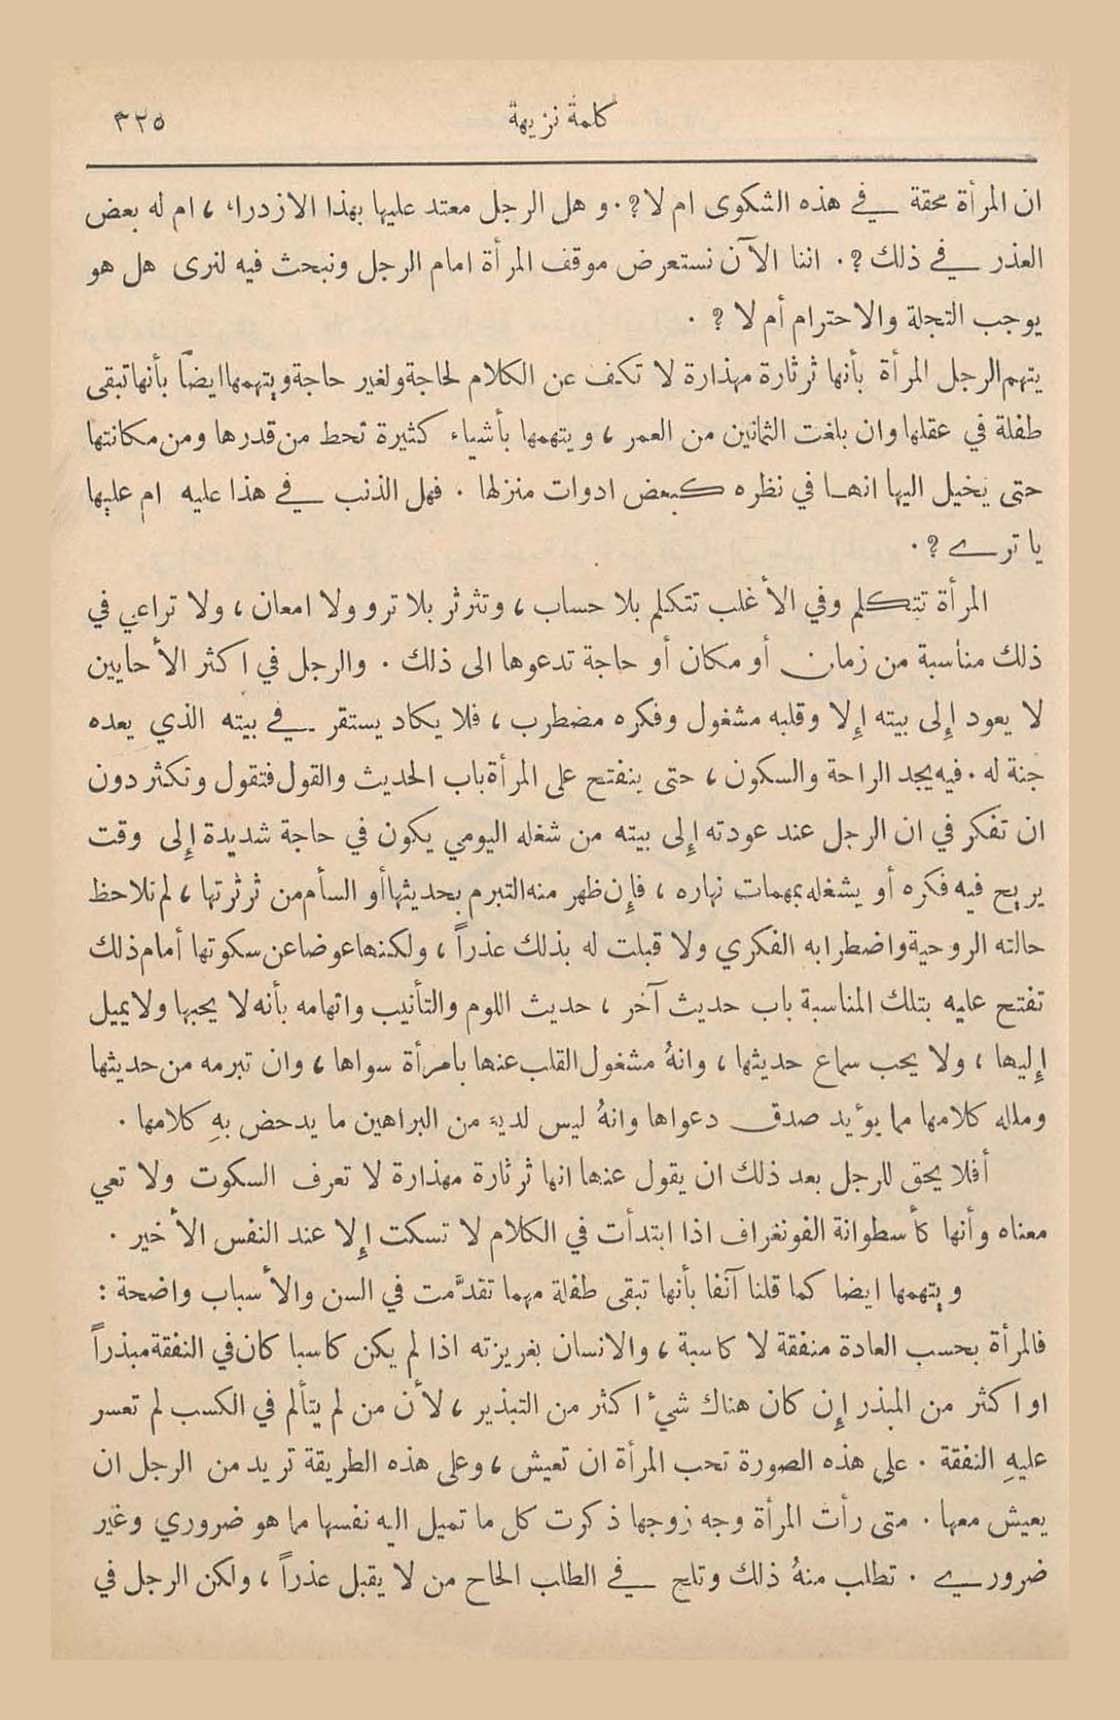 كلمة نزيهة
٣٢٥
ان المرأة محقة في هذه الشكوى ام لا؟. و هل الرجل معتد عليها بهذا الازدراء، ام له بعض
العذر في ذلك؟. اننا الآن نستعرض موقف المرأة امام الرجل ونبحث فيه لنرى هل هو
يوجب التجلة والاحترام أم لا؟.
يتهم الرجل المرأة بأنها ثرثارة مهذارة لا تكف عن الكلام لحاجة ولغير حاجة ويتهمها ايضاً بأنها تبقى
طفلة في عقلها وان بلغت الثمانين من العمر، ويتهمها بأشياء كثيرة تحط من قدرها ومن مكانتها
حتى يخيل اليها انها في نظره كبعض ادوات منزلها. فهل الذنب في هذا عليه ام عليها
يا ترى؟.
المرأة تتكلم وفي الأغلب تتكلم بلا حساب، وتثرثر بلا ترو ولا امعان، ولا تراعي في
ذلك مناسبة من زمان أو مكان أو حاجة تدعوها الى ذلك. والرجل في اكثر الأحايين
لا يعود إلى بيته إلا وقلبه مشغول وفكره مضطرب، فلا يكاد يستقر في بيته الذي يعده
جنة له. فيه يجد الراحة والسكون، حتى ينفتح على المرأة باب الحديث والقول فتقول وتكثر دون
ان تفكر في ان الرجل عند عودته إلى بيته من شغله اليومي يكون في حاجة شديدة إلى وقت
يريح فيه فكره أو يشغله بمهمات نهاره، فإن ظهر منه التبرم بحديثها أو السأم من ثرثرتها، لم تلاحظ
حالته الروحية واضطرابه الفكري ولا قبلت له بذلك عذراً، ولكنها عوضا عن سكوتها أمام ذلك
تفتح عليه بتلك المناسبة باب حديث آخر، حديث اللوم والتأنيب واتهامه بأنه لا يحبها ولا يميل
إليها، ولا يحب سماع حديثها، وانهُ مشغول القلب عنها بامرأة سواها، وان تبرمه من حديثها
وملله كلامها مما يؤيد صدق دعواها وانهُ ليس لديه من البراهين ما يدحض بهِ كلامها.
أفلا يحق للرجل بعد ذلك ان يقول عنها انها ثرثارة مهذارة لا تعرف السكوت ولا تعي
معناه وأنها كأسطوانة الفونغراف اذا ابتدأت في الكلام لا تسكت إلا عند النفس الأخير.
ويتهمها ايضا كما قلنا آنفا بأنها تبقى طفلة مهما تقدَّمت في السن والأسباب واضحة:
فالمرأة بحسب العادة منفقة لا كاسبة، والانسان بغريزته اذا لم يكن كاسبا كان في النفقة مبذراً
او اكثر من المبذر إن كان هناك شيء اكثر من التبذير، لأن من لم يتألم في الكسب لم تعسر
عليهِ النفقة. على هذه الصورة تحب المرأة ان تعيش، وعلى هذه الطريقة تريد من الرجل ان
يعيش معها. متى رأت المرأة وجه زوجها ذكرت كل ما تميل اليه نفسها مما هو ضروري وغير
ضروري. تطلب منهُ ذلك وتلح في الطلب الحاح من لا يقبل عذراً، ولكن الرجل في